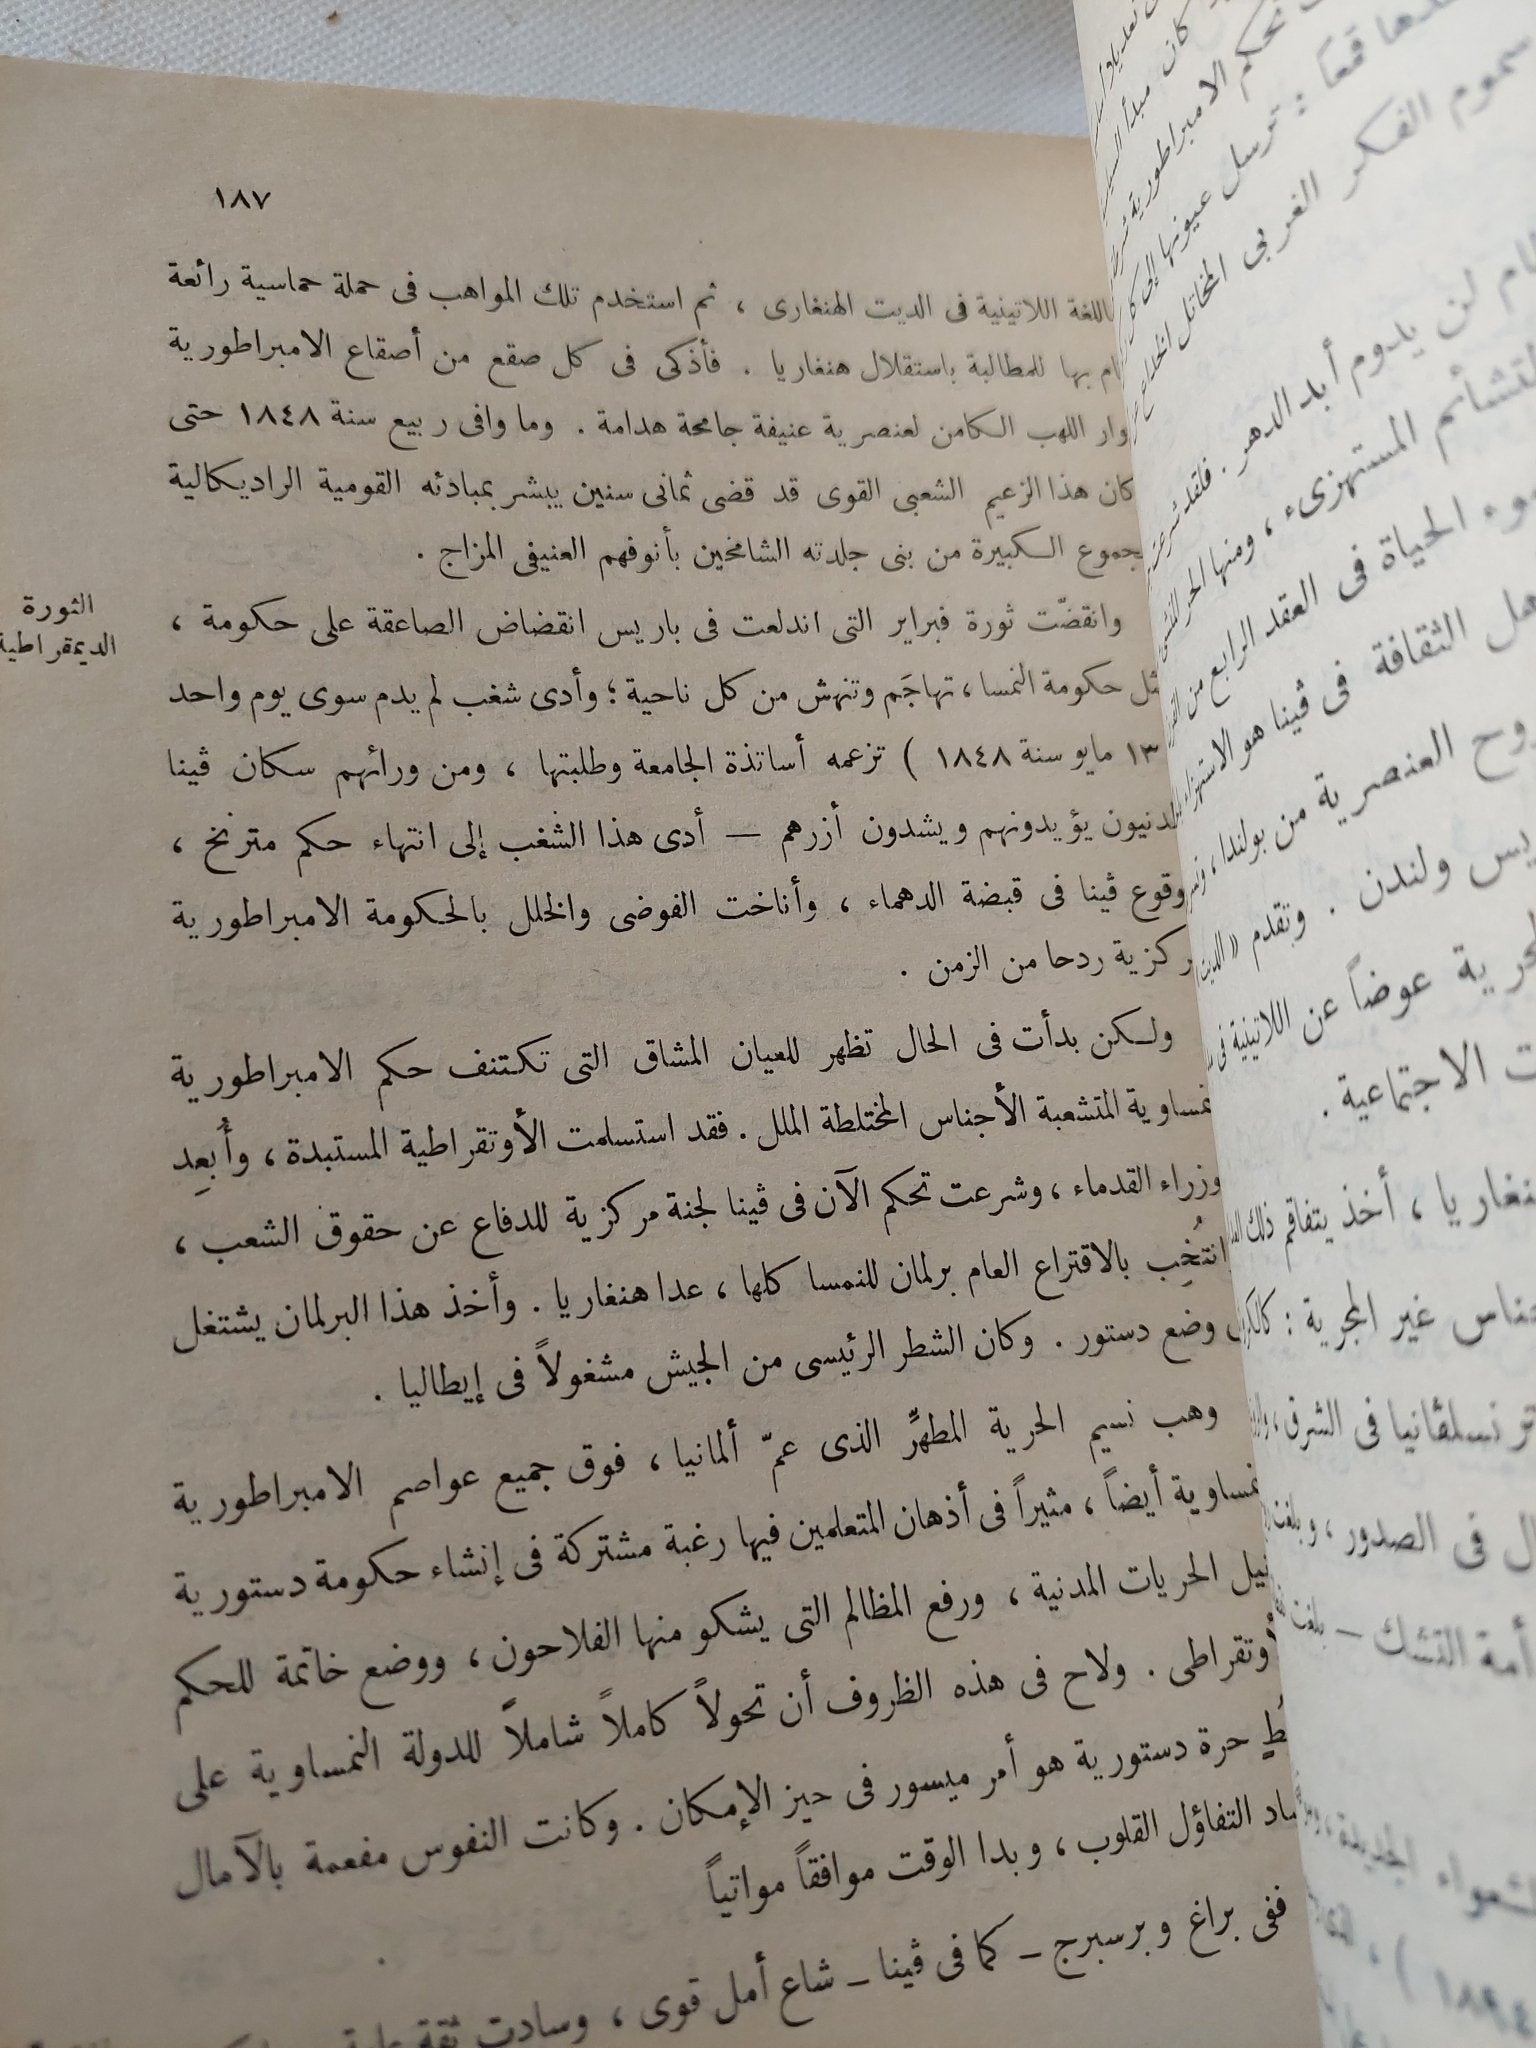 ١٨٧
باللغة اللاتينية فى الديت الهنغارى ، ثم استخدم تلك المواهب فى حملة حماسية رائعة
بها للمطالبة باستقلال هنغاريا . فأذكى فى كل صقع من أصقاع الامبراطورية
اللهب الكامن لعنصرية عنيفة جامحة هدامة . وما وافى ربيع سنة ١٨٤٨ حتى
كان هذا الزعيم الشعبى القوى قد قضى ثمانى سنين يبشر بمبادئه القومية الراديكالية
الكبيرة من بنى جلدته الشامخين بأنوفهم العنيفى المزاج .
الثورة
الديمقراطية
وانقضّت ثورة فبراير التى اندلعت فى باريس انقضاض الصاعقة على حكومة ،
حكومة النمسا ، تهاجَم وتنهش من كل ناحية ؛ وأدى شغب لم يدم سوى يوم واحد
١٣ مايو سنة ١٨٤٨ ) تزعمه أساتذة الجامعة وطلبتها ، ومن ورائهم سكان ڤينا
يؤيدونهم ويشدون أزرهم — أدى هذا الشغب إلى انتهاء حكم مترنخ ،
وقوع ڤينا فى قبضة الدهماء ، وأناخت الفوضى والخلل بالحكومة الامبراطورية
ردحا من الزمن .
ولكن بدأت فى الحال تظهر للعيان المشاق التى تكتنف حكم الامبراطورية
المتشعبة الأجناس المختلطة الملل . فقد استسلمت الأوتقراطية المستبدة ، وأُبعِد
القدماء ، وشرعت تحكم الآن فى ڤينا لجنة مركزية للدفاع عن حقوق الشعب ،
انتُخِب بالاقتراع العام برلمان للنمسا كلها ، عدا هنغاريا . وأخذ هذا البرلمان يشتغل
وضع دستور . وكان الشطر الرئيسى من الجيش مشغولاً فى إيطاليا .
وهب نسيم الحرية المطهرِّ الذى عمّ ألمانيا ، فوق جميع عواصم الامبراطورية
أيضاً ، مثيراً فى أذهان المتعلمين فيها رغبة مشتركة فى إنشاء حكومة دستورية
نيل الحريات المدنية ، ورفع المظالم التى يشكو منها الفلاحون ، ووضع خاتمة للحكم
ولاح فى هذه الظروف أن تحولاً كاملاً شاملاً للدولة النمساوية على
حرة دستورية هو أمر ميسور فى حيز الإمكان . وكانت النفوس مفعمة بالآمال
التفاؤل القلوب ، وبدا الوقت موافقاً مواتياً
ففى براغ وبرسبرج — كما فى ڤينا — شاع أمل قوى ، وسادت ثقة
كان مبدأ
تحكم الامبراطورية
قمعاً : ترسل عيونها إلى كل
سموم الفكر الغربى المخاتل
لن يدوم أبد الدهر . فلقد
المستهزىء ، ومنها
الحياة فى العقد الرابع من
الثقافة فى ڤينا هو
العنصرية من بولندا ،
ولندن . وتقدم « الديت
عوضاً عن اللاتينية فى
الاجتماعية .
أخذ يتفاقم ذلك
غير المجرية :
ترنسلڤانيا فى الشرق ،
فى الصدور ،
أمة التشك — بلغت